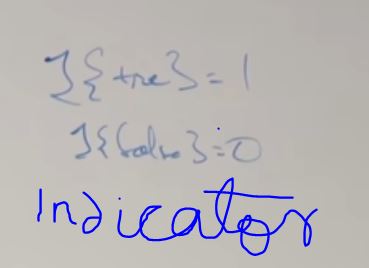 1{true}=1
1{false}=0
Indicator